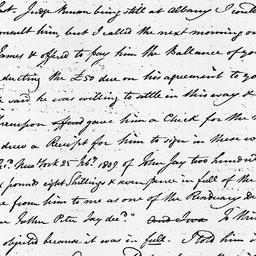 Judge Benson being still at albany I could
consult him, but I called the next morning on
James & offered to pay him the Ballance of you
deducting the £50 due on his agreement to yo
he said he was willing to settle in this way &
Thereupon offered gave him a Check for the
& drew a Receipt for him to sign in these wo
New York 25 Feby. 1809 of John Jay two hundred
x pounds eight Shillings & seven pence in full of the
due from him to me as one of the Residuary De
Father Peter Jay decd."
objected because it was in full. I told him i